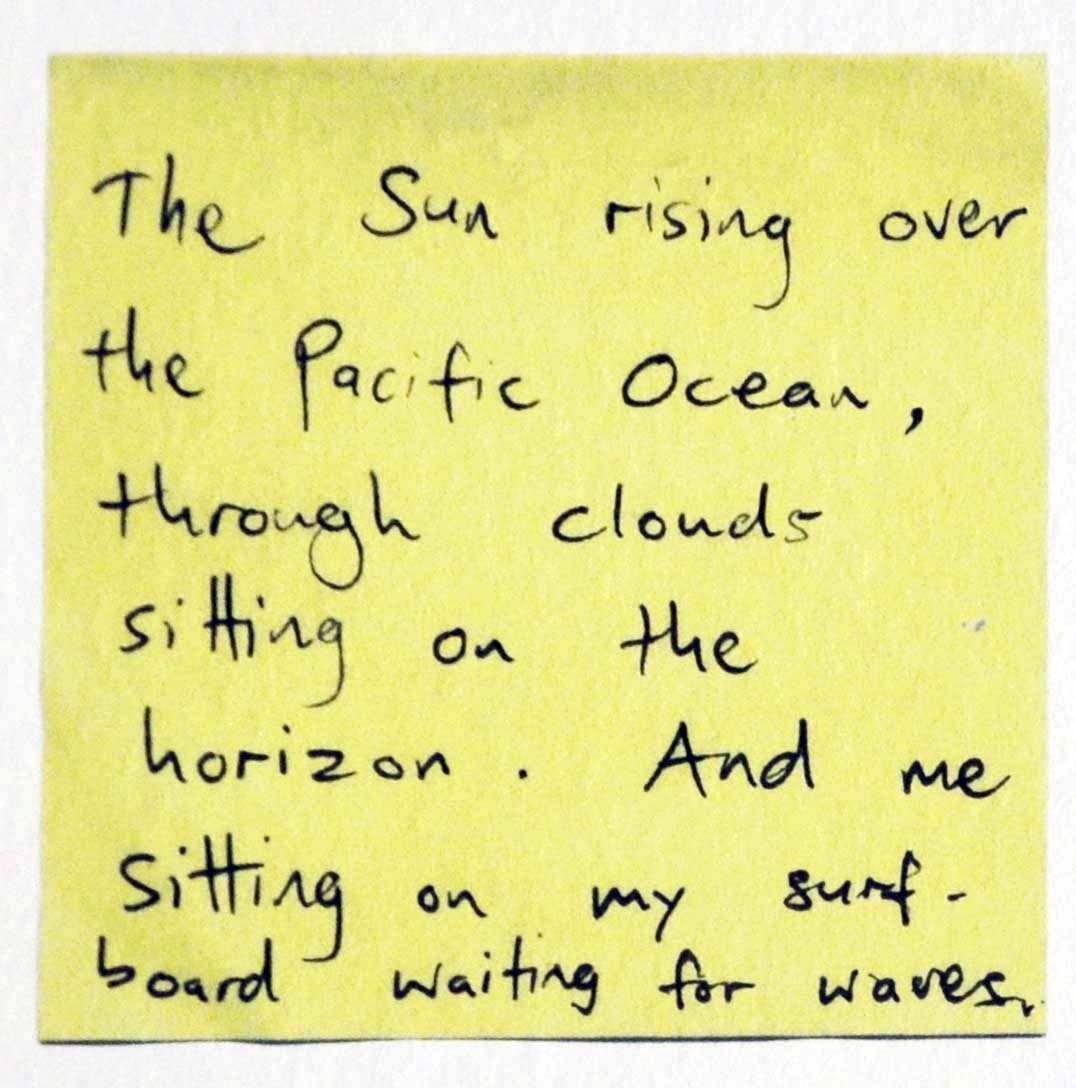 The Sun rising over
the Pacific Ocean,
through clouds
sitting on the
horizon. And me
sitting on my surf-
board waiting for waves.